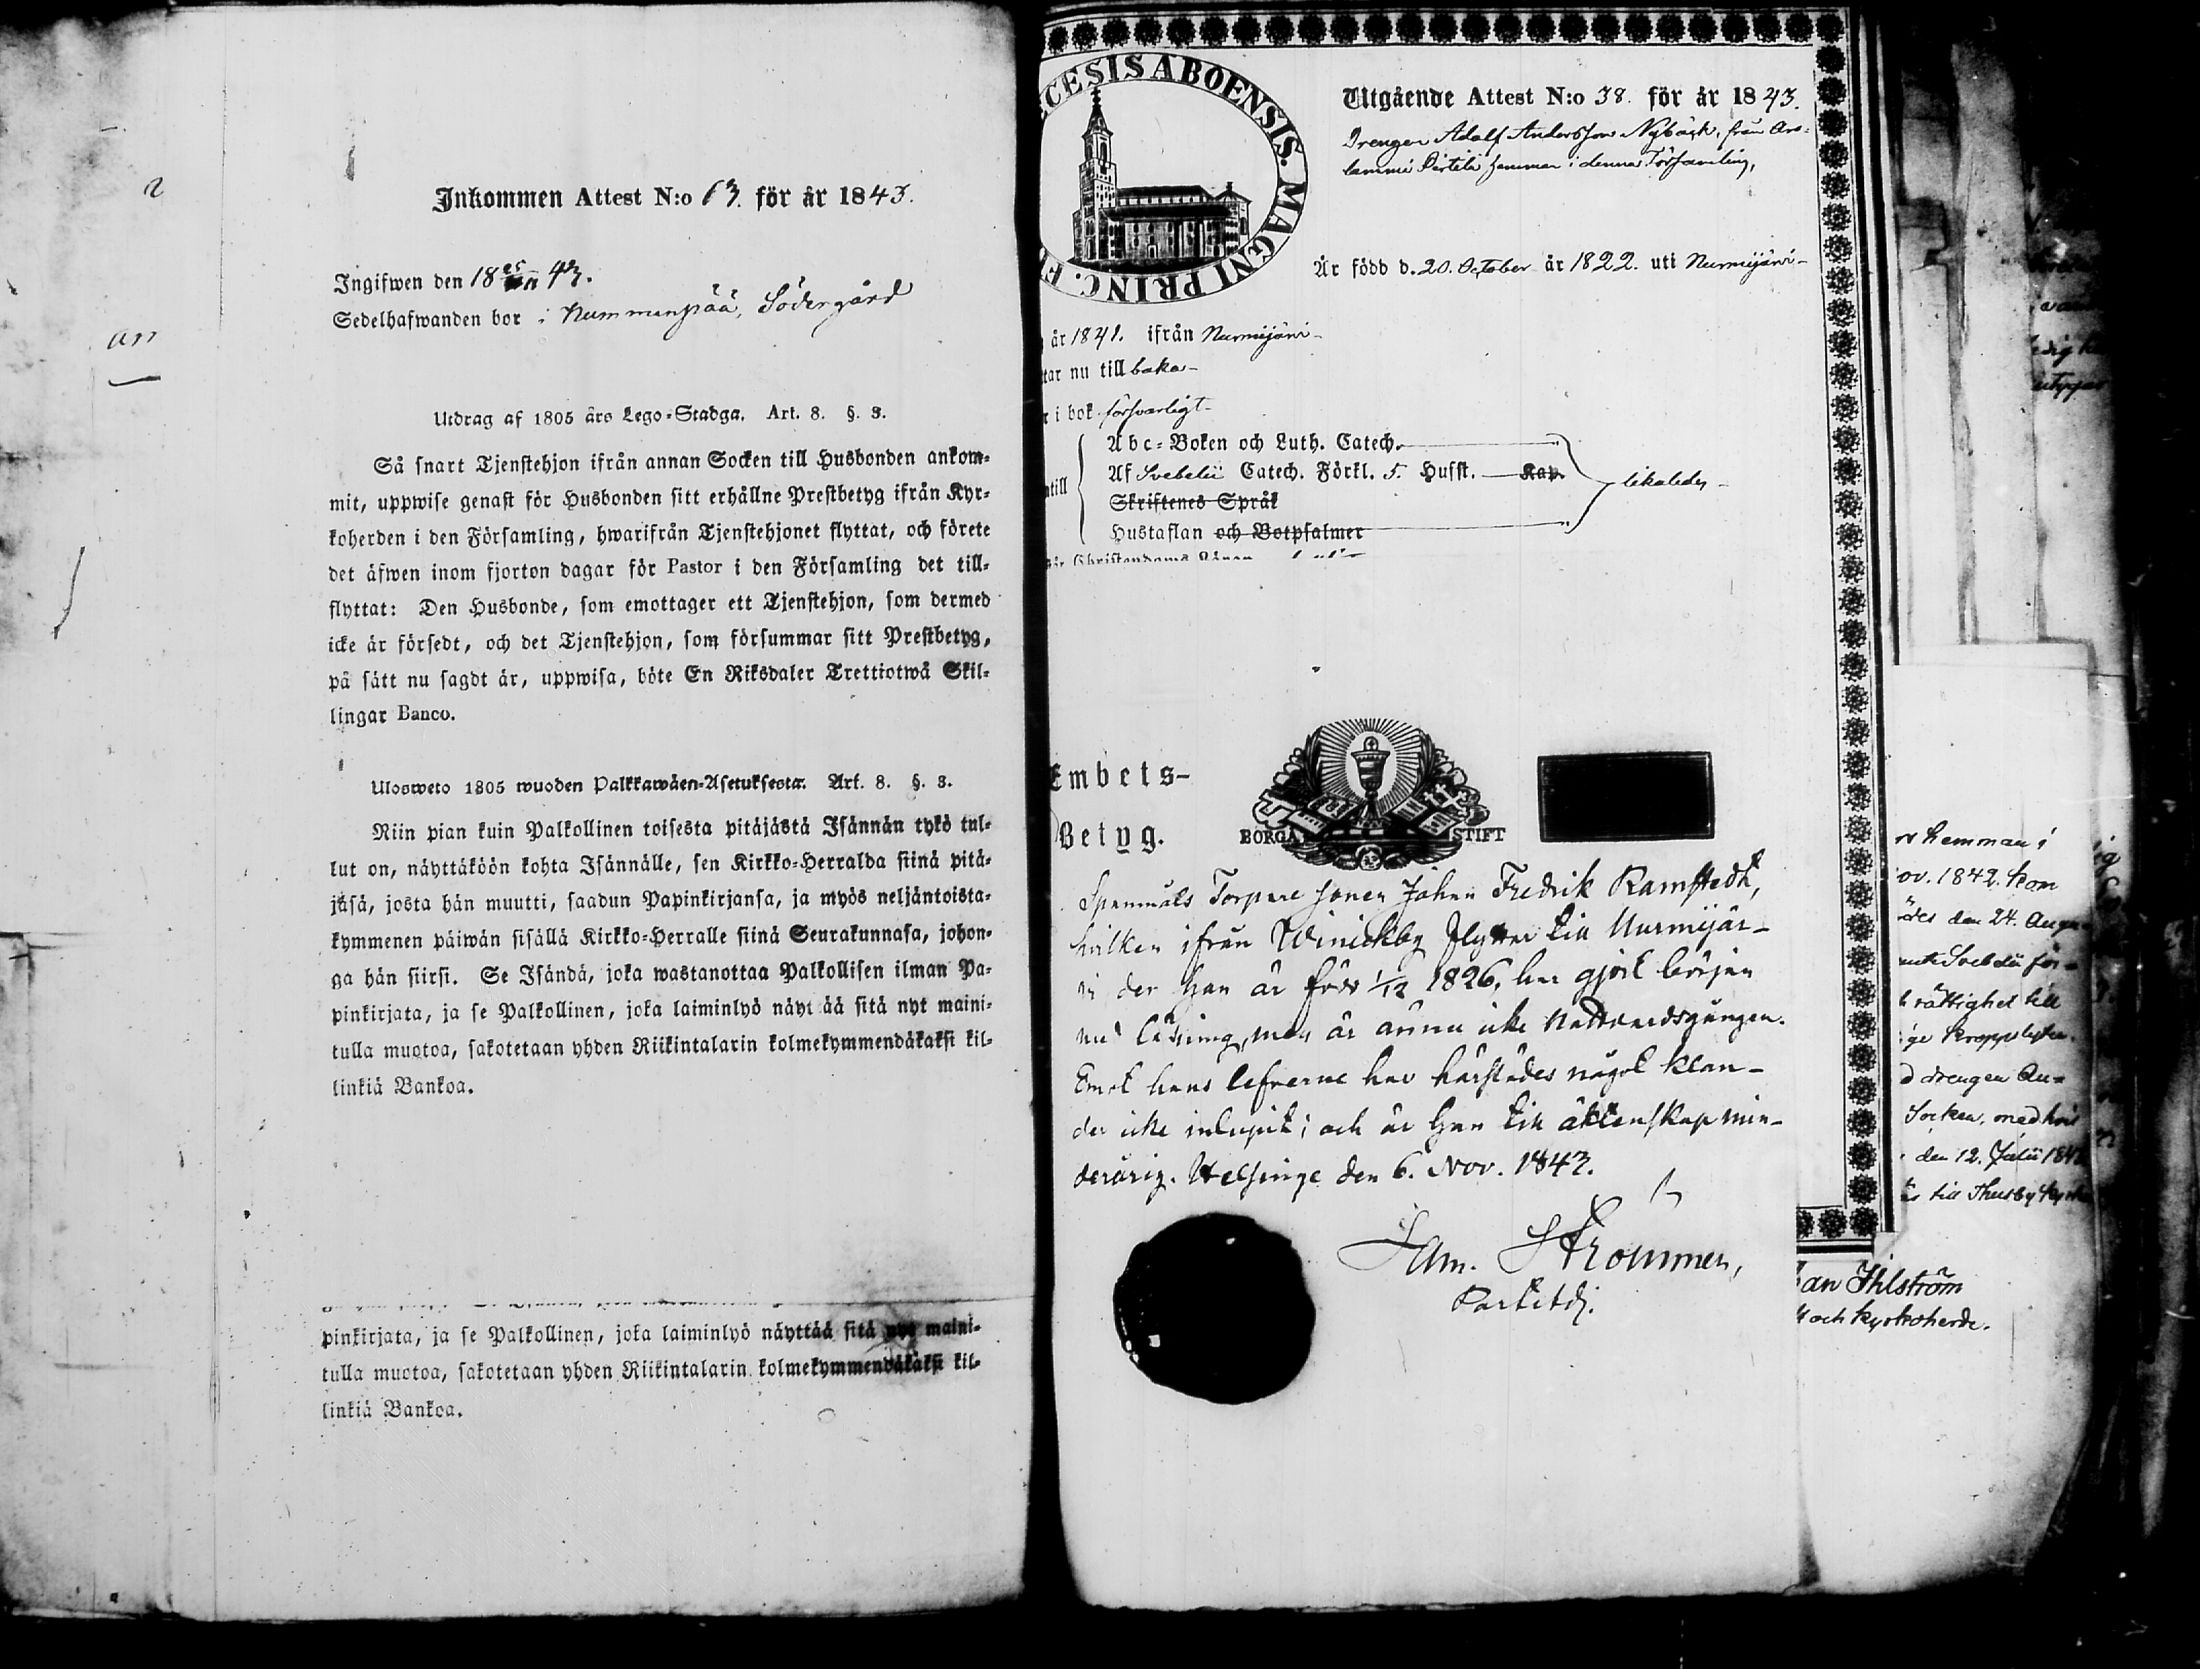 Inkommen Attest N:o 63. för år 1843.
Ingifwen den 18 25/11 43.
Sedelhafwanden bor i Nummenpää, Södergård
Utdrag af 1805 års Lego-Stadga. Art. 8. §. 3.
Så snart Tjenstehjon ifrån annan Socken till Husbonden ankom-
mit, uppwise genast för Husbonden sitt erhållne Prestbetyg ifrån Kyr-
koherden i den Församling, hwarifrån Tjenstehjonet flyttat, och förete
det äfwen inom fjorton dagar för Pastor i den Församling det till-
flyttat: Den Husbonde, som emottager ett Tjenstehjon, som dermed
icke är försedt, och det Tjenstehjon, som försummar sitt Prestbetyg,
på sätt nu sagdt är, uppwisa, böte En Riksdaler Trettiotwå Skil-
lingar Banco.
Ulosweto 1805 wuoden Palkkawäen-Asetuksesta. Art. 8. §. 3.
Niin pian kuin Palkollinen toisesta pitäjästä Isännän tykö tul-
lut on, näyttäköön kohta Isännälle, sen Kirkko-Herralda siinä pitä-
jäsä, josta hän muutti, saadun Papinkirjansa, ja myös neljäntoista-
kymmenen päiwän sisällä Kirkko-Herralle siinä Seurakunnasa, johon-
ga hän siirsi. Se Isändä, joka wastanottaa Palkollisen ilman Pa-
pinkirjata, ja se Palkollinen, joka laiminlyö näyt ää sitä nyt maini-
tulla muotoa, sakotetaan yhden Riikintalarin kolmekymmendäkaksi kil-
linkiä Bankoa.
pinkirjata, ja se Palkollinen, joka laiminlyö näyttää sitä nyt maini-
tulla muotoa, sakotetaan yhden Riikintalarin kolmekymmendäkaksi kil-
linkiä Bankoa.
CESIS ABOENSIS. MAGNI PRINC. F
Utgående Attest N:o 38. för år 1843.
Drengen Adolf Andersson Nybäck, från Ors-
lammi Pertilä hemman i denna Församling,
Är född d. 20. October år 1822. uti Nurmijärvi-
år 1841. ifrån Nurmijärvi-
tar nu tillbaka-
r i bok försvarligt-
Abc-Boken och Luth. Catech.
Af Svebelii Catech. Förkl. 5. Husst. Kap.
ntill
likaledes-
Skriftenes Språk
Hustaflan och Botpsalmer
Embets-
Betyg.
BORGÅ STIFT
Spanmåls Torpare sonen Johan Fredrik Ramstedt,
hvilken ifrån Winickby flyttar till Nurmijär-
vi der han är född 1/12 1826, har gjort början
med läsning, men är ännu icke Nattvardsgången.
Emot hans lefverne har härstädes något klan-
der icke inlupit; och är han till äktenskap min-
derårig. Helsinge den 6. Nov. 1843.
Sam. Strömmer,
Past: adj.
hemman i
ov. 1842. kom
ödes den 24. Aug
Svebelii för-
rättighet till
ige Kroppslyten.
d drengen An-
Socken, med hvil
den 12. Julii 184
till Thusby Kyrko
an Ihlström
och kyrkoherde.